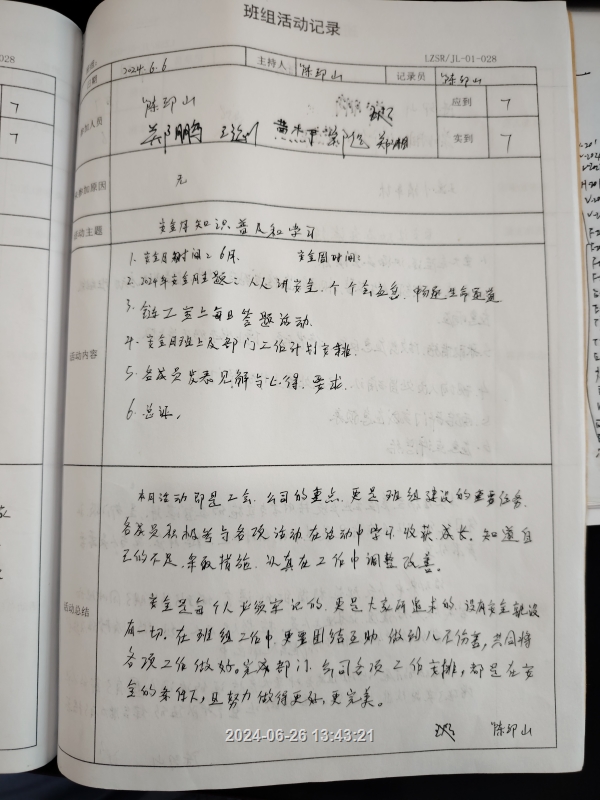 班组活动记录
LZSR/JL-01-028
日期 2024.6.6 主持人 陈印山 记录员 陈印山
参加人员 陈印山 应到 7
郑鹏 郑朋 实到 7
参加原因 无
活动主题 安全月知识普及和学习
活动内容
1. 安全月时间:6月. 安全周时间:
2. 2024年安全月主题:人人讲安全、个个会应急、畅通生命通道
3. 工会每日答题活动.
4. 安全月班上及部门工作计划安排.
5. 各成员发表见解与心得、要求.
6. 总结.
活动总结
本月活动即是工会、公司的重点,更是班组建设的重要任务.
各成员积极参与各项活动在活动中学习、收获、成长. 知道自
己的不足,采取措施,认真在工作中调整改善。
安全是每个人必须牢记的,更是大家所追求的,没有安全就没
有一切。在班组工作中,更要团结互助,做到八不伤害,共同将
各项工作做好。完成部门、公司各项工作安排,都是在安
全的条件下,且努力做得更好、更完美。
陈印山
2024-06-26 13:43:21
028
7
7